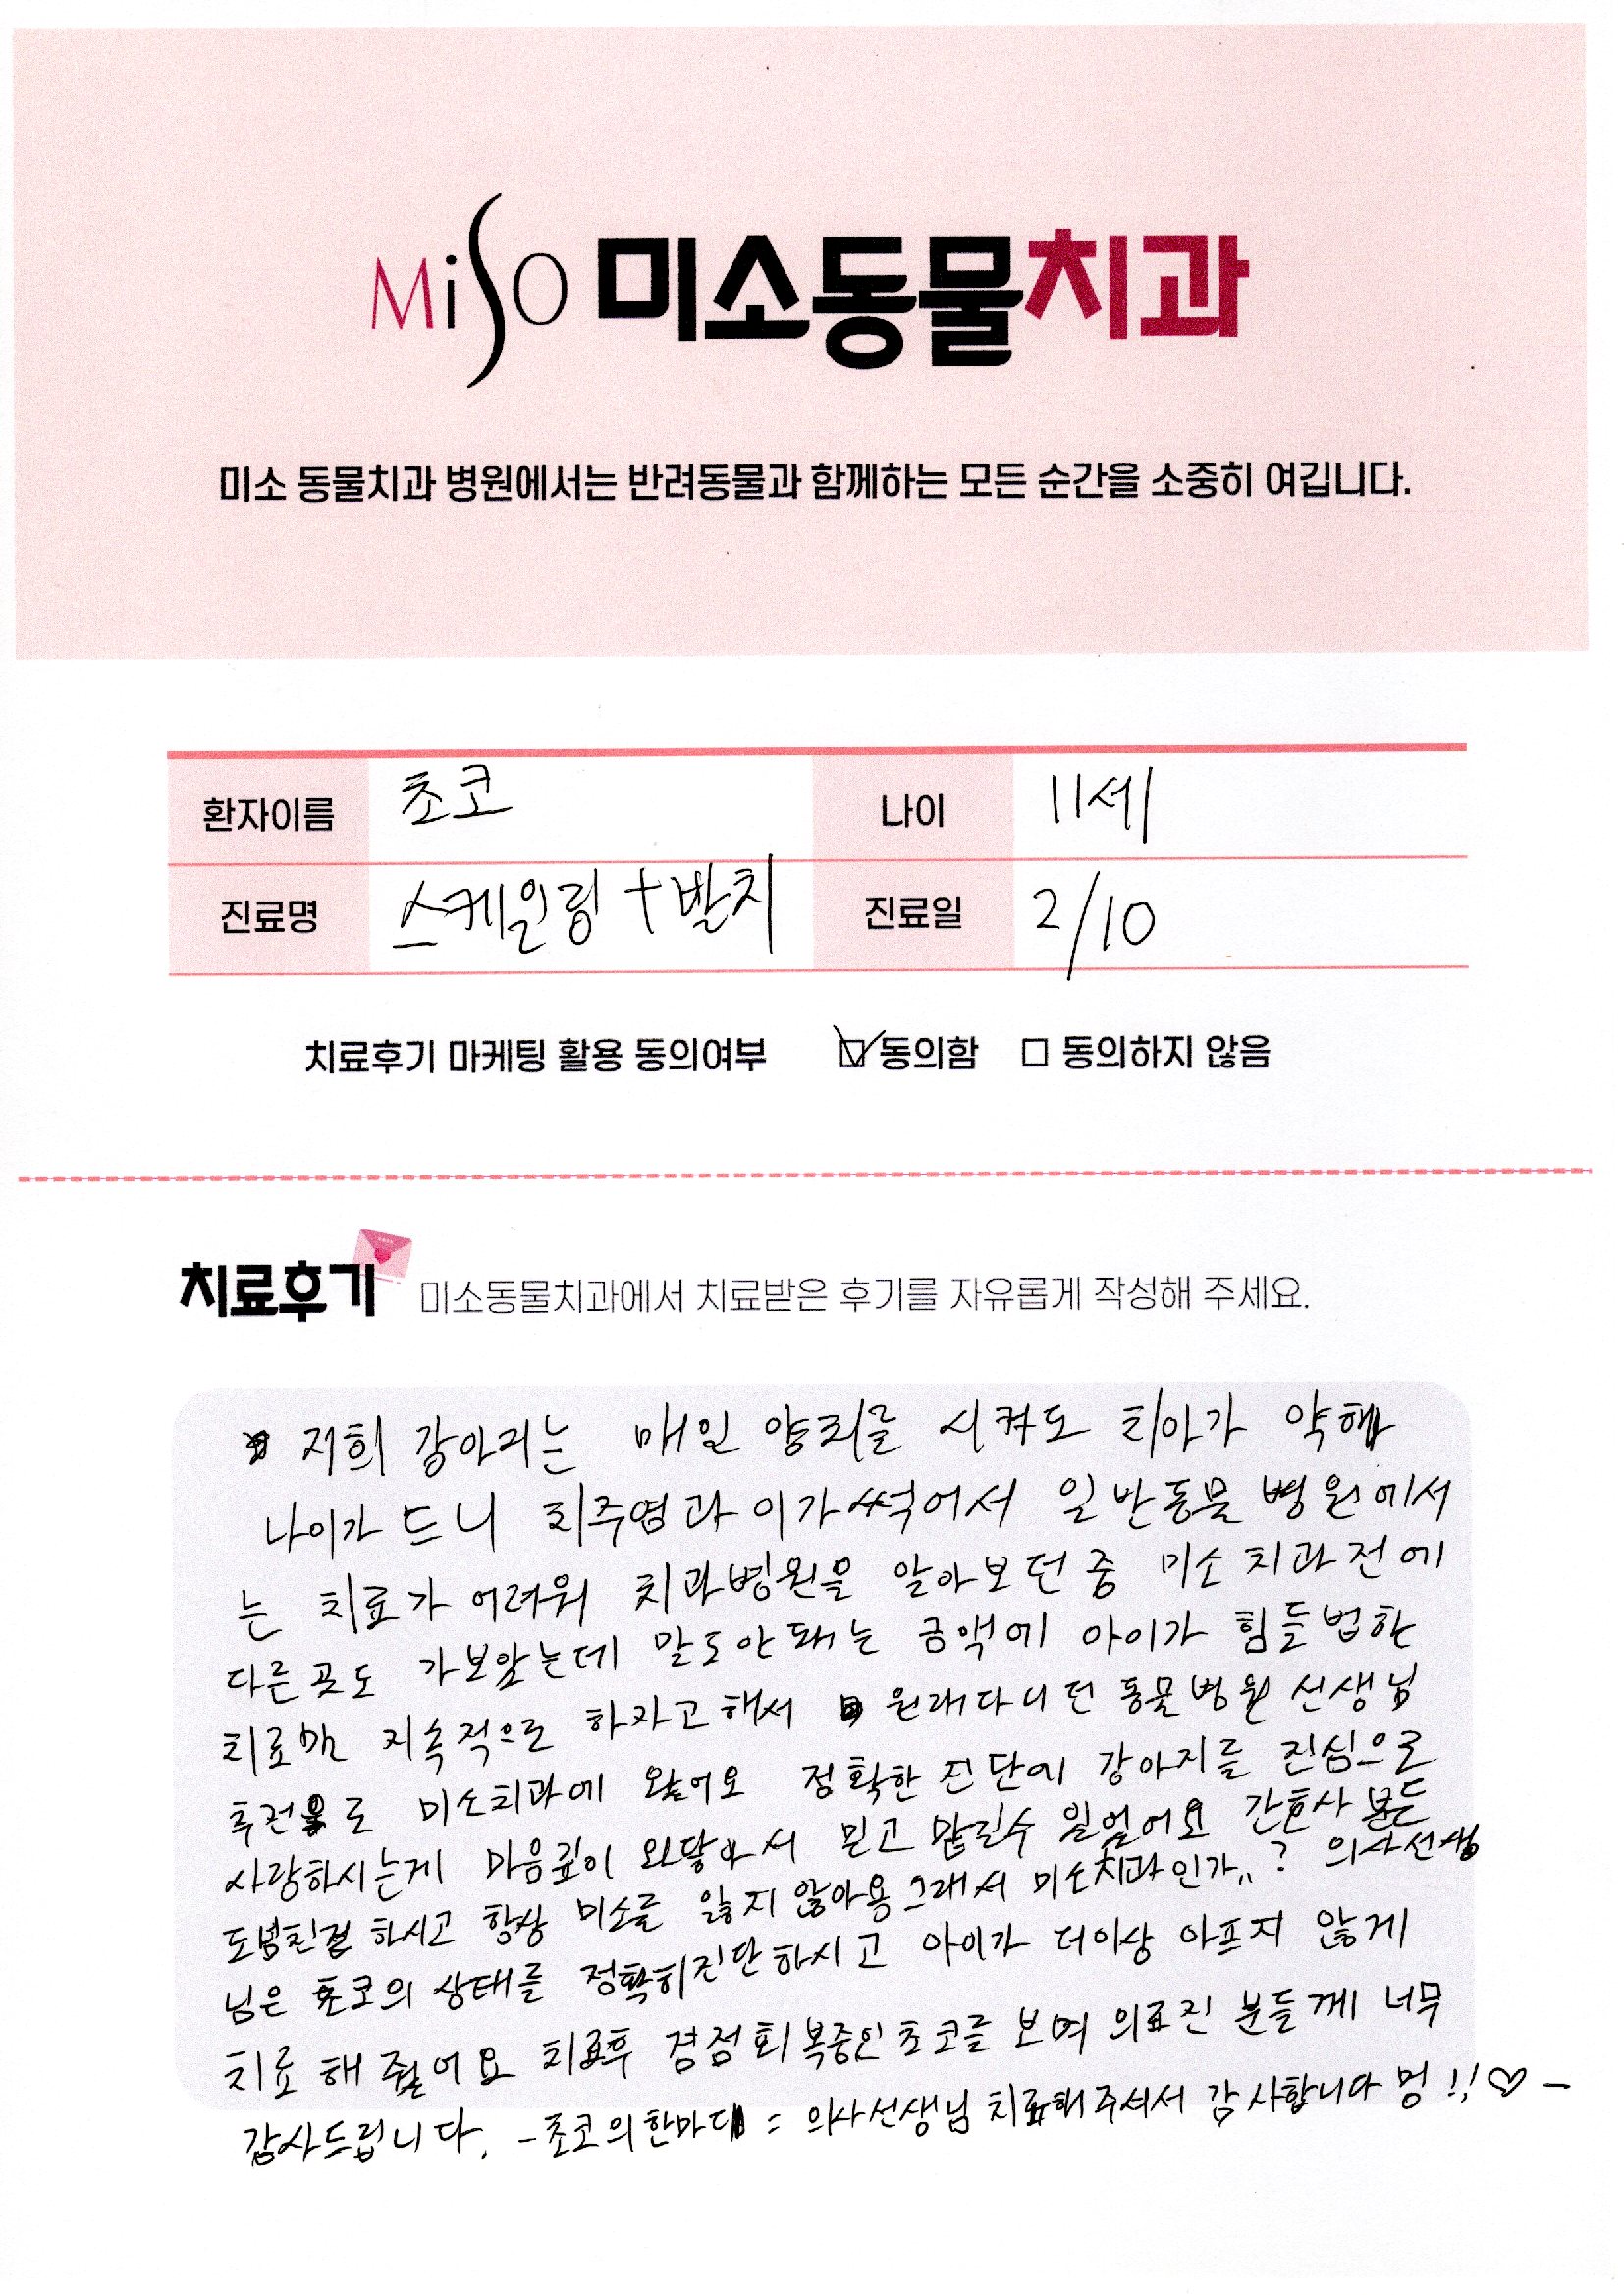 MiSO 미소동물치과
미소 동물치과 병원에서는 반려동물과 함께하는 모든 순간을 소중히 여깁니다.
환자이름 초코 나이 11세
진료명 스케일링+발치 진료일 2/10
치료후기 마케팅 활용 동의여부 ☑동의함 □ 동의하지 않음
치료후기 미소동물치과에서 치료받은 후기를 자유롭게 작성해 주세요.
저희 강아지는 매일 양치를 시켜도 치아가 약해
나이가 드니 치주염과 이가 썩어서 일반동물 병원에서
는 치료가 어려워 치과병원을 알아보던중 미소치과전에
다른곳도 가보았는데 말도안돼는 금액에 아이가 힘들법한
치료만 지속적으로 하자고해서 원래다니던 동물병원 선생님
추천으로 미소치과에 왔어요 정확한 진단에 강아지를 진심으로
사랑하시는게 마음깊이 와닿아서 믿고 맡길수 있었어요 간호사 분들
도넘친절 하시고 항상 미소를 잃지 않아용 그래서 미소치과인가..? 의사선생
님은 초코의 상태를 정확히진단하시고 아이가 더이상 아프지 않게
치료 해 줬어요 치료후 점점회복중인 초코를 보며 의료진 분들께 너무
감사드립니다. -초코의한마디 : 의사선생님 치료해주셔서 감사합니다 멍!!♡-